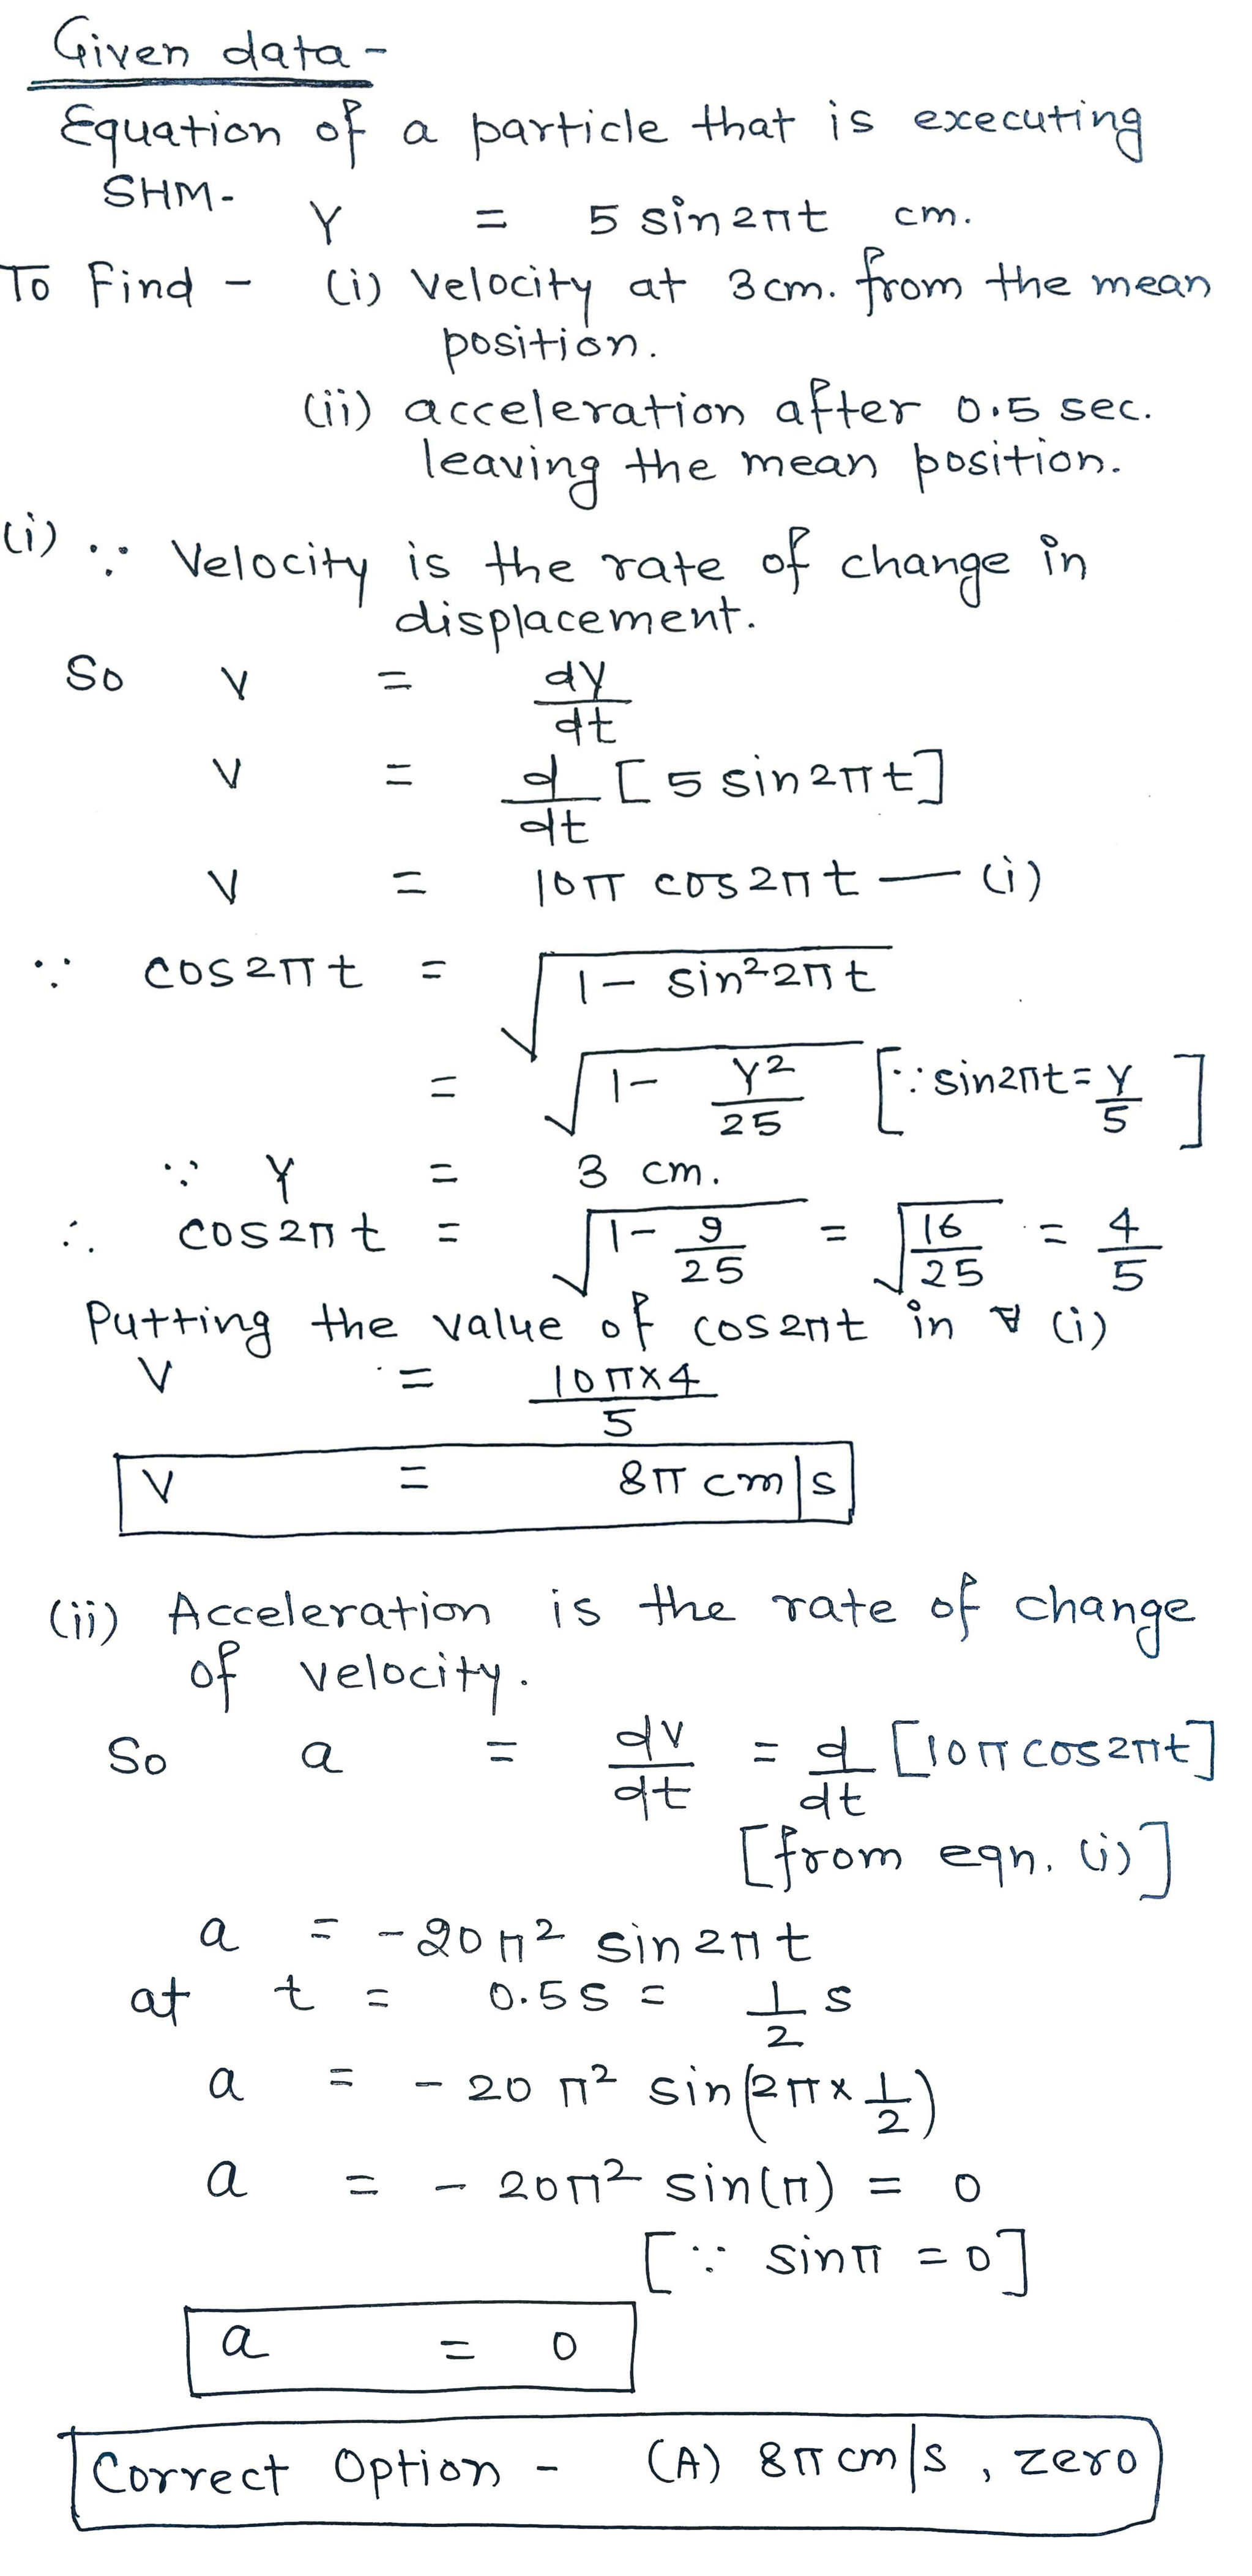 Given data -
Equation of a particle that is executing
SHM-
Y = 5 sin2πt cm.
To Find - (i) Velocity at 3cm. from the mean
position.
(ii) acceleration after 0.5 sec.
leaving the mean position.
(i) ∵ Velocity is the rate of change in
displacement.
So V = dY/dt
V = d/dt [5 sin2πt]
V = 10π cos2πt — (i)
∵ cos2πt = √(1 - sin²2πt)
= √(1 - Y²/25) [∵ sin2πt = Y/5]
∵ Y = 3 cm.
∴ cos2πt = √(1 - 9/25) = √(16/25) = 4/5
Putting the value of cos2πt in (i)
V = 10π×4/5
V = 8π cm/s
(ii) Acceleration is the rate of change
of velocity.
So a = dv/dt = d/dt [10π cos2πt]
[from eqn. (i)]
a = -20π² sin2πt
at t = 0.5s = 1/2 s
a = -20π² sin(2π×1/2)
a = -20π² sin(π) = 0
[∵ sinπ = 0]
a = 0
Correct Option - (A) 8π cm/s, zero